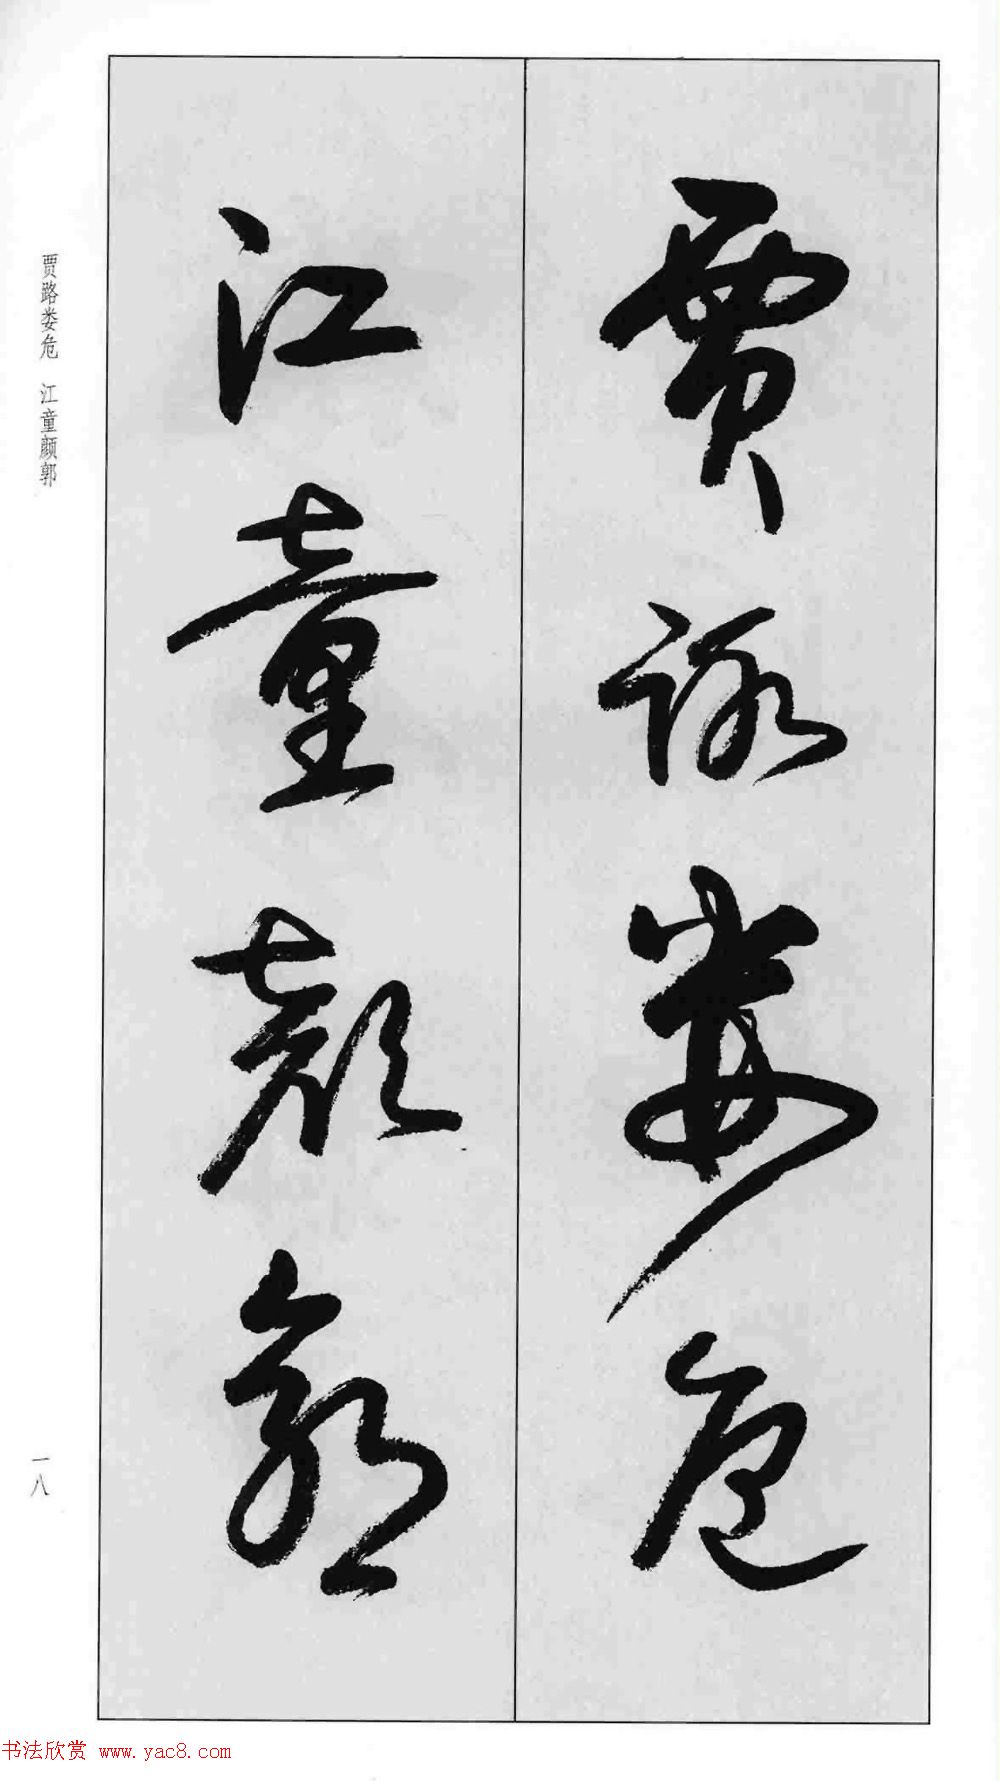 賈路婁危
江童顔郭
贾路娄危 江童颜郭
一八
书法欣赏 www.yac8.com